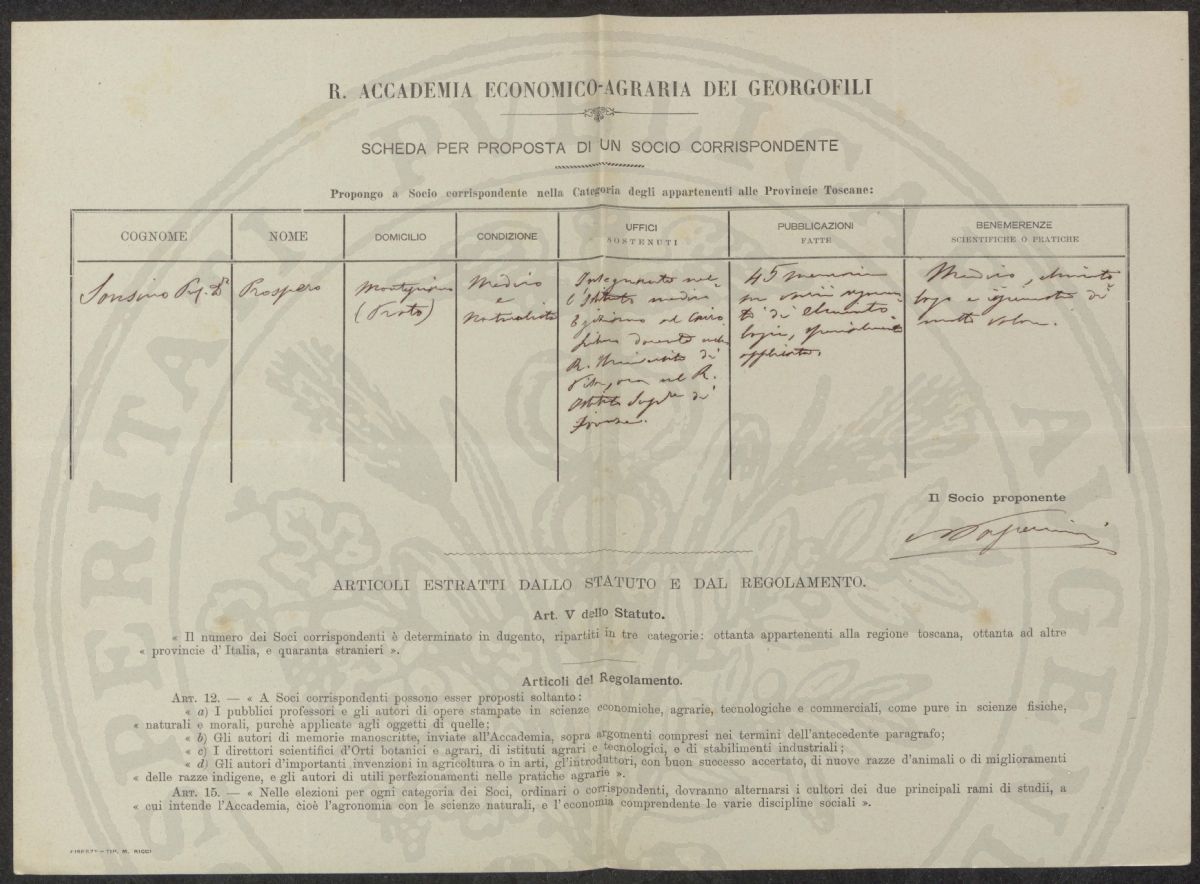 R. ACCADEMIA ECONOMICO-AGRARIA DEI GEORGOFILI
SCHEDA PER PROPOSTA DI UN SOCIO CORRISPONDENTE
Propongo a Socio corrispondente nella Categoria degli appartenenti alle Provincie Toscane:
COGNOME
NOME
DOMICILIO
CONDIZIONE
UFFICI
SOSTENUTI
PUBBLICAZIONI
FATTE
BENEMERENZE
SCIENTIFICHE O PRATICHE
Sonsino Prof. Dr
Prospero
(Prato)
Medico
e
Naturalista
Insegnante nel
l'Istituto medico
Egiziano al Cairo
libero docente nella
R. Università di
Pisa, ora nel R.
Istituto Supre di
Firenze.
45 memorie
su varii argomen-
ti di elminto
logia, specialmente
applicata.
Medico, elminto
logo e igienista di
molto valore.
Il Socio proponente
ARTICOLI ESTRATTI DALLO STATUTO E DAL REGOLAMENTO.
Art. V dello Statuto.
« Il numero dei Soci corrispondenti è determinato in dugento, ripartiti in tre categorie: ottanta appartenenti alla regione toscana, ottanta ad altre
« provincie d' Italia, e quaranta stranieri ».
Articoli del Regolamento.
ART. 12. — « A Soci corrispondenti possono esser proposti soltanto:
« a) I pubblici professori e gli autori di opere stampate in scienze economiche, agrarie, tecnologiche e commerciali, come pure in scienze fisiche,
« naturali e morali, purchè applicate agli oggetti di quelle;
« b) Gli autori di memorie manoscritte, inviate all'Accademia, sopra argomenti compresi nei termini dell'antecedente paragrafo;
« c) I direttori scientifici d'Orti botanici e agrari, di istituti agrari e tecnologici, e di stabilimenti industriali;
« d) Gli autori d'importanti invenzioni in agricoltura o in arti, gl'introduttori, con buon successo accertato, di nuove razze d'animali o di miglioramenti
« delle razze indigene, e gli autori di utili perfezionamenti nelle pratiche agrarie ».
ART. 15. — « Nelle elezioni per ogni categoria dei Soci, ordinari o corrispondenti, dovranno alternarsi i cultori dei due principali rami di studii, a
« cui intende l'Accademia, cioè l'agronomia con le scienze naturali, e l'economia comprendente le varie discipline sociali ».
FIRENZE - TIP. M. RICCI
PROSPERITATI PUBLICAE AUGENDAE